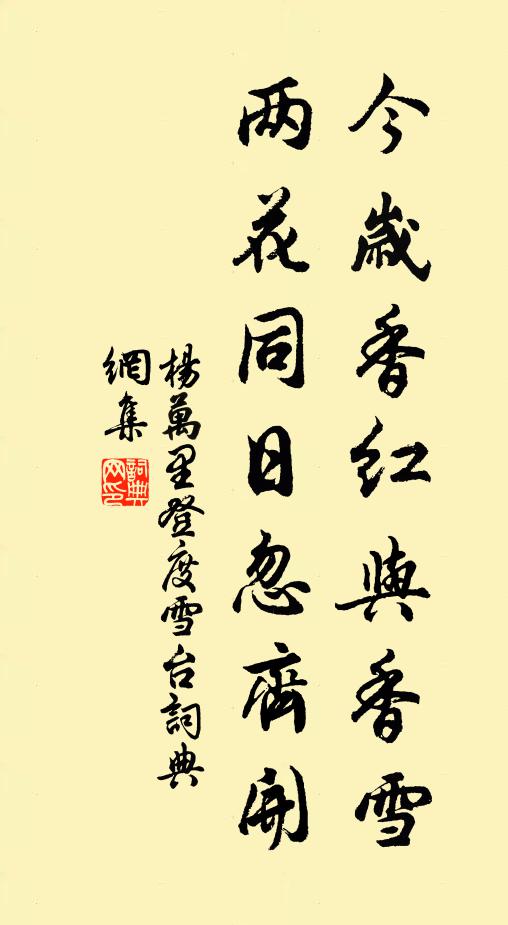 今歲香紅與香雪
两花同日忽齊開
楊萬里登度雪台詞典
網集
詞典網印